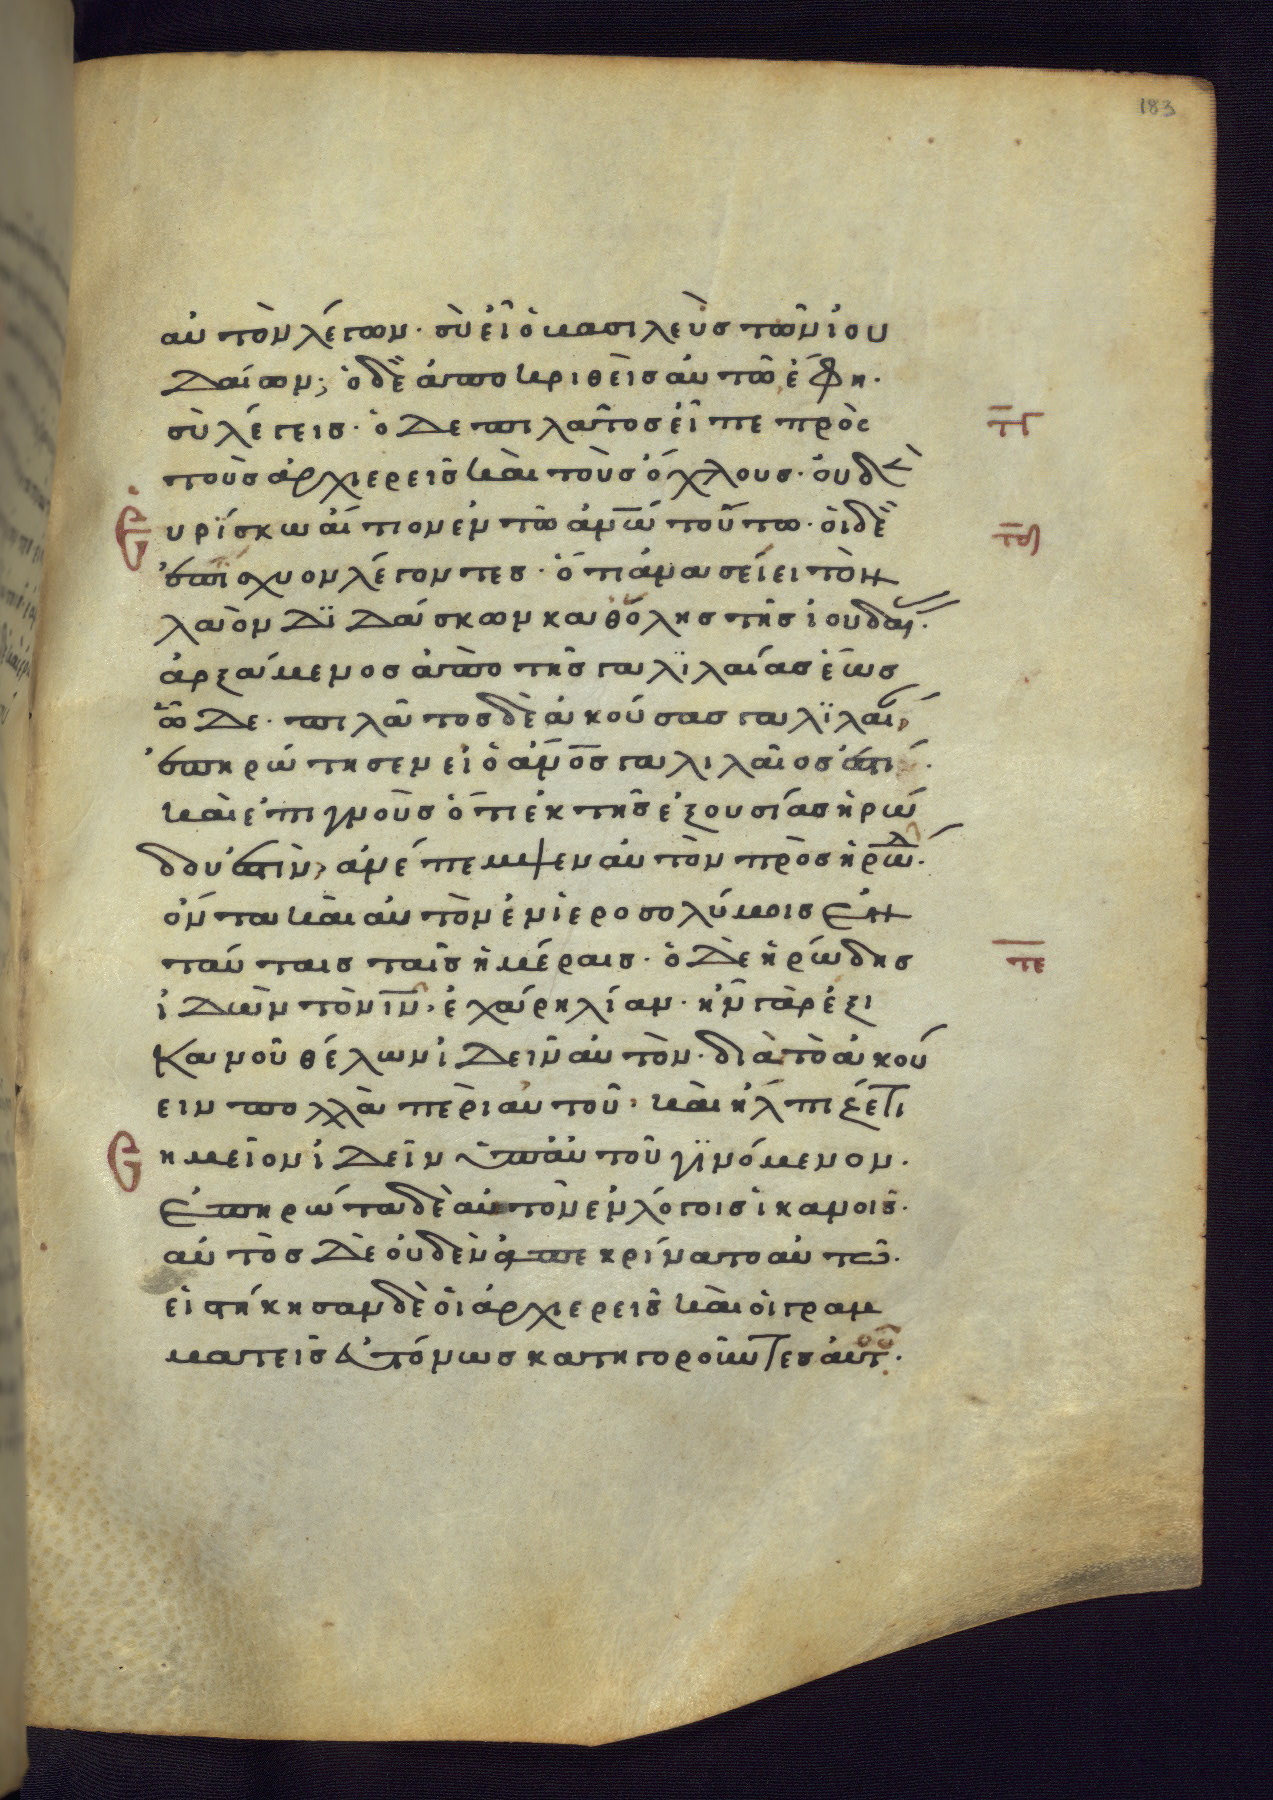 183
αὐτὸν λέγων· σὺ εἶ ὁ βασιλεὺς τῶν ἰου
δαίων; ὁ δὲ ἀποκριθεὶς αὐτῶ ἔφη·
σὺ λέγεις· ὁ δὲ πιλάτος εἶπε πρὸς
τοὺς ἀρχιερεῖς καὶ τοὺς ὄχλους· οὐδὲ
εὑρΐσκω αἴτιον ἐν τῶ ἀν̅ω̅ τούτω· οἱ δὲ
ἐπΐσχυον λέγοντες· ὅτι ἀνασείει τὸν
λαὸν διδάσκων καθ' ὅλης τῆς ἰουδαί·
ἀρξάμενος ἀπὸ τῆς γαλϊλαίας ἕως
ὧδε· πιλάτος δὲ ἀκούσας γαλϊλαί,
ἐπηρώτησεν εἰ ὁ ἀν̅ο̅ς γαλιλαῖος ἐστι·
καὶ ἐπιγνοὺς ὅτι ἐκ τῆς ἐξουσίας ἡρώ
δου ἐστὶν, ἀνέπεμψεν αὐτὸν πρὸς ἡρώδ·
ὄντα καὶ αὐτὸν ἐν ἱεροσολύμοις ἐν
ταύταις ταῖς ἡμέραις· ὁ δὲ ἡρώδης
ἰδὼν τὸν ι̅ν̅, ἐχάρη λίαν· ἦν γὰρ ἐξ ι
κανοῦ θέλων ἰδεῖν αὐτὸν· διὰ τὸ ἀκού
ειν πολλὰ περὶ αὐτοῦ· καὶ ἤλπιζέ τι
σημεῖον ἰδεῖν ὑπ' αὐτοῦ γϊνόμενον·
ἐπηρώτα δὲ αὐτὸν ἐν λόγοις ἱκανοῖς·
αὐτὸς δὲ οὐδὲν ἀπεκρίνατο αὐτῶ·
εἱστήκησαν δὲ οἱ ἀρχιερεῖς καὶ οἱ γραμ
ματεῖς εὐτόνως κατηγοροῦντες αὐτοῦ·
π̅γ̅
π̅δ̅
π̅ε̅